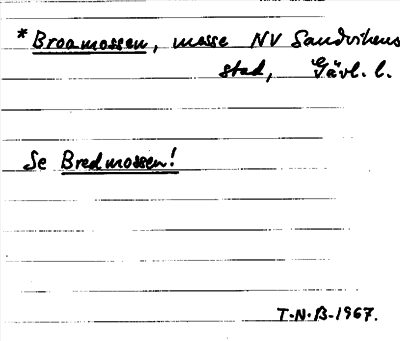 * Broamossen, mosse NV Sandvikens
stad, Gävl. l.
Se Bredmossen!
T.N.B-1967.